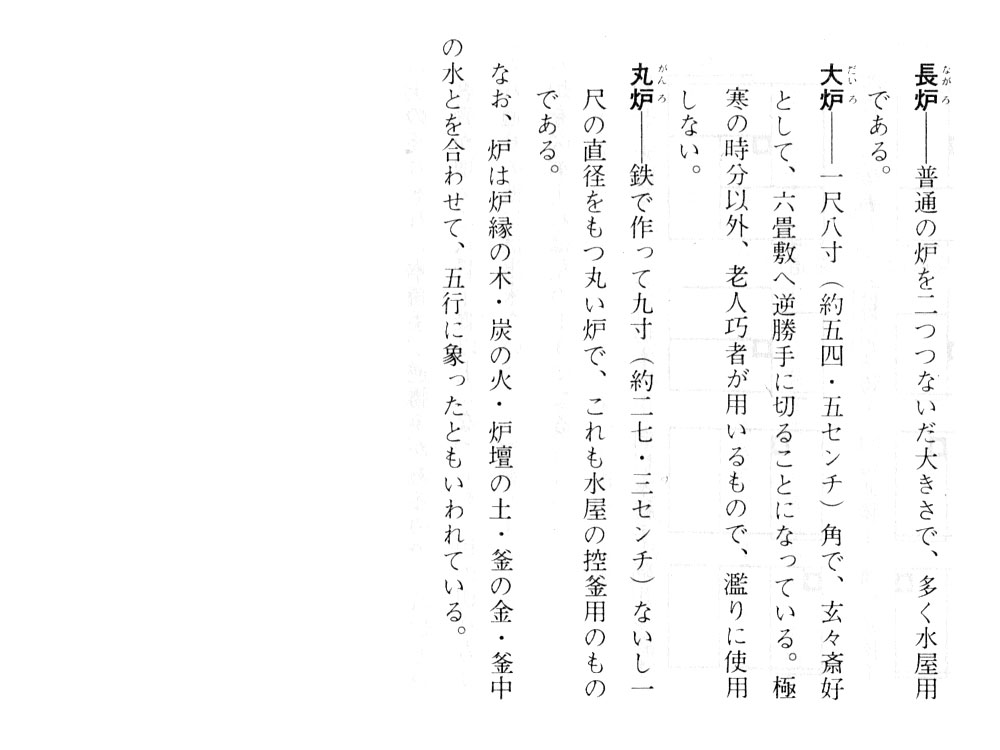 長炉――普通の炉を二つつないだ大きさで、多く水屋用
である。
大炉――一尺八寸（約五四・五センチ）角で、玄々斎好
として、六畳敷へ逆勝手に切ることになっている。極
寒の時分以外、老人巧者が用いるもので、濫りに使用
しない。
丸炉――鉄で作って九寸（約二七・三センチ）ないし一
尺の直径をもつ丸い炉で、これも水屋の控釜用のもの
である。
なお、炉は炉縁の木・炭の火・炉壇の土・釜の金・釜中
の水とを合わせて、五行に象ったともいわれている。
ながろ
だいろ
がんろ